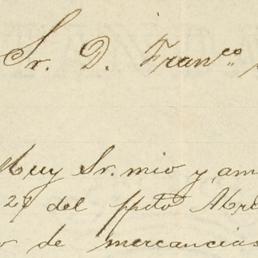 Sr. D. Franco.
Muy Sr. mio y am
2 del ppdo Abr
r de mercancias